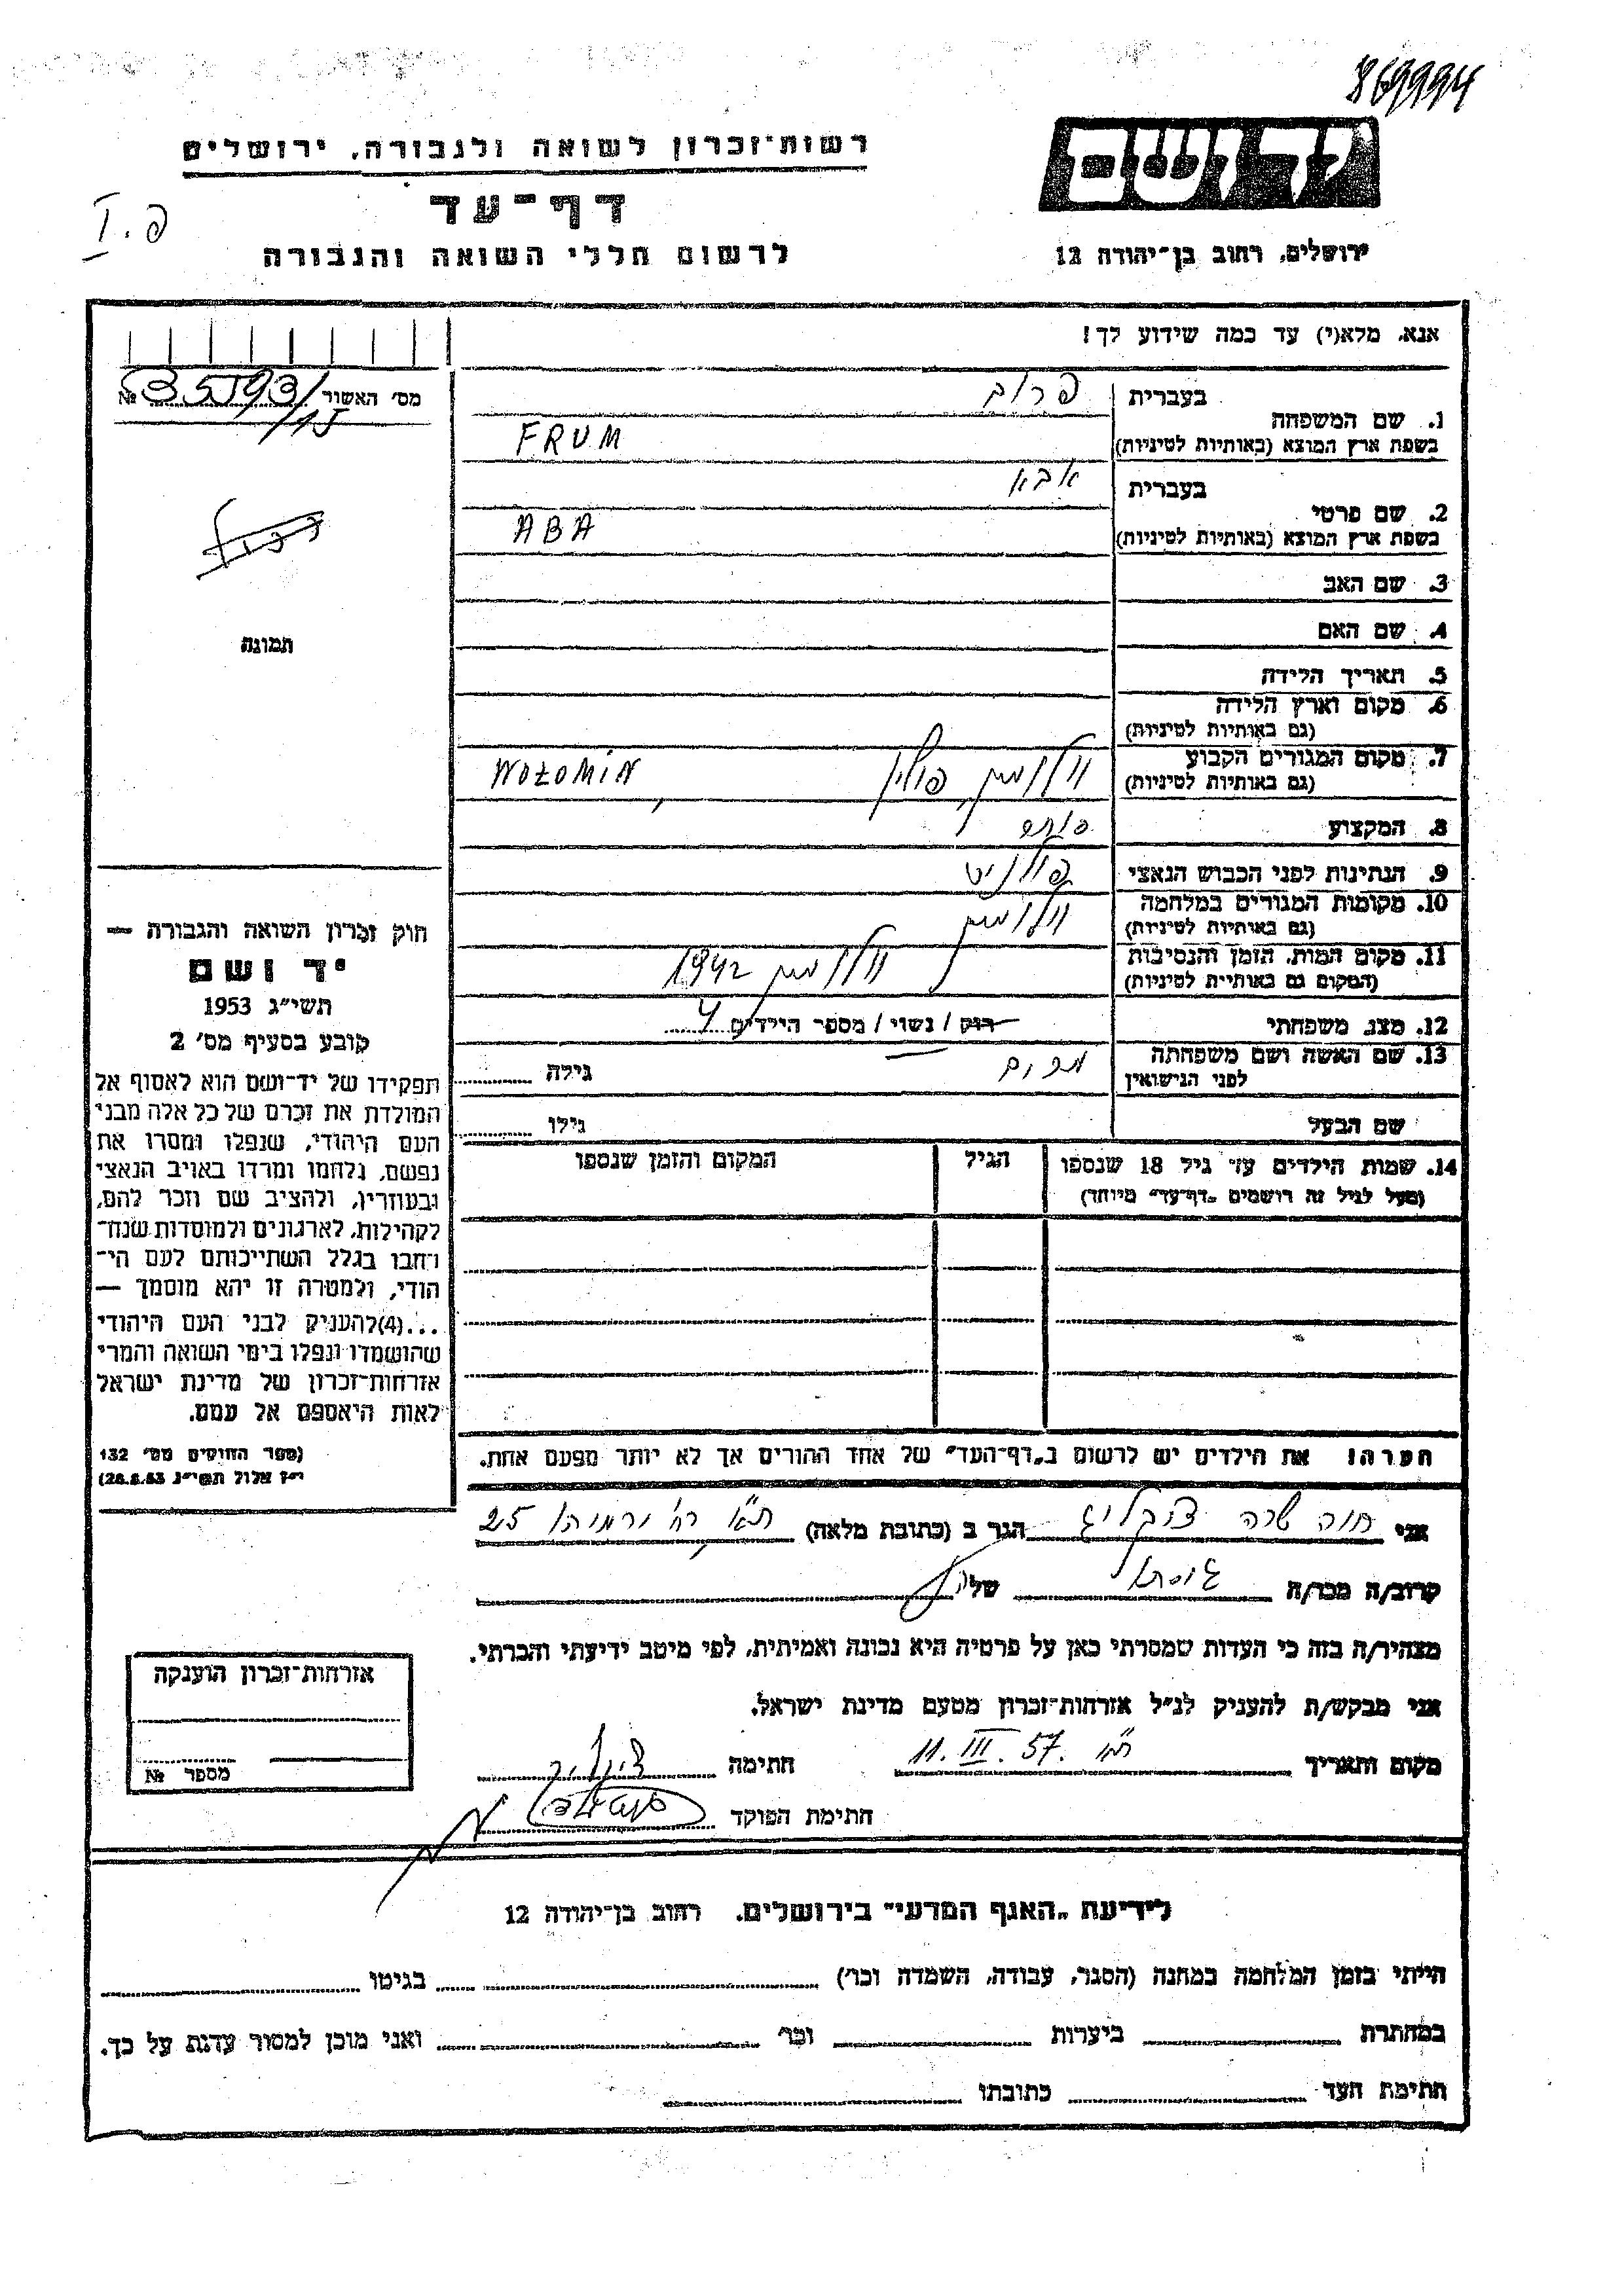 869994
רשות־זכרון לשואה ולגבורה, ירושלים
יד ושם
דף־עד
פ. I
לרשום חללי השואה והגבורה
ירושלים, רחוב בן־יהודה 12
אנא, מלא(י) עד כמה שידוע לך!
מס׳ האשור № 35193/15
1. שם המשפחה
בעברית פרום
בשפת ארץ המוצא (באותיות לטיניות) FRUM
2. שם פרטי
בעברית אבא
בשפת ארץ המוצא (באותיות לטיניות) ABA
3. שם האב
4. שם האם
תמונה
5. תאריך הלידה
6. מקום וארץ הלידה
(גם באותיות לטיניות)
7. מקום המגורים הקבוע וולומין, פולין, WOŁOMIN
(גם באותיות לטיניות)
8. המקצוע סוחר
9. הנתינות לפני הכבוש הנאצי פולנית
10. מקומות המגורים במלחמה וולומין
(גם באותיות לטיניות)
11. מקום המות, הזמן והנסיבות וולומין 1942
(המקום גם באותיות לטיניות)
12. מצב משפחתי רווק / נשוי / מספר הילדים 4
13. שם האשה ושם משפחתה
לפני הנישואין גילה
שם הבעל גילו
14. שמות הילדים עד גיל 18 שנספו הגיל המקום והזמן שנספו
(מעל לגיל זה רושמים „דף־עד״ מיוחד)
הערה! את הילדים יש לרשום ב„דף־העד״ של אחד ההורים אך לא יותר מפעם אחת.
חוק זכרון השואה והגבורה —
יד ושם
תשי״ג 1953
קובע בסעיף מס׳ 2
תפקידו של יד־ושם הוא לאסוף אל
המולדת את זכרם של כל אלה מבני
העם היהודי, שנפלו ומסרו את
נפשם, נלחמו ומרדו באויב הנאצי
ובעוזריו, ולהציב שם וזכר להם,
לקהילות, לארגונים ולמוסדות שנח־
רבו בגלל השתייכותם לעם הי־
הודי, ולמטרה זו יהא מוסמך —
...(4)להעניק לבני העם היהודי
שהושמדו ונפלו בימי השואה והמרי
אזרחות־זכרון של מדינת ישראל
לאות היאספם אל עמם.
(ספר החוקים מס׳ 132
י״ז אלול תשי״ג 28.8.53)
אני חוה שרה הגר ב (כתובת מלאה) ת״א רח׳ ירמיהו 25
קרוב/ה מכר/ה של
מצהיר/ה בזה כי העדות שמסרתי כאן על פרטיה היא נכונה ואמיתית, לפי מיטב ידיעתי והכרתי.
אני מבקש/ת להעניק לנ״ל אזרחות־זכרון מטעם מדינת ישראל.
מקום ותאריך ת״א 11. III. 57. חתימה
חתימת הפוקד
אזרחות־זכרון הוענקה
מספר №
לידיעת „האגף המדעי״ בירושלים. רחוב בן־יהודה 12
הייתי בזמן המלחמה במחנה (הסגר, עבודה, השמדה וכו׳) בגיטו
במחתרת ביערות וכו׳ ואני מוכן למסור עדות על כך.
חתימת העד כתובתו